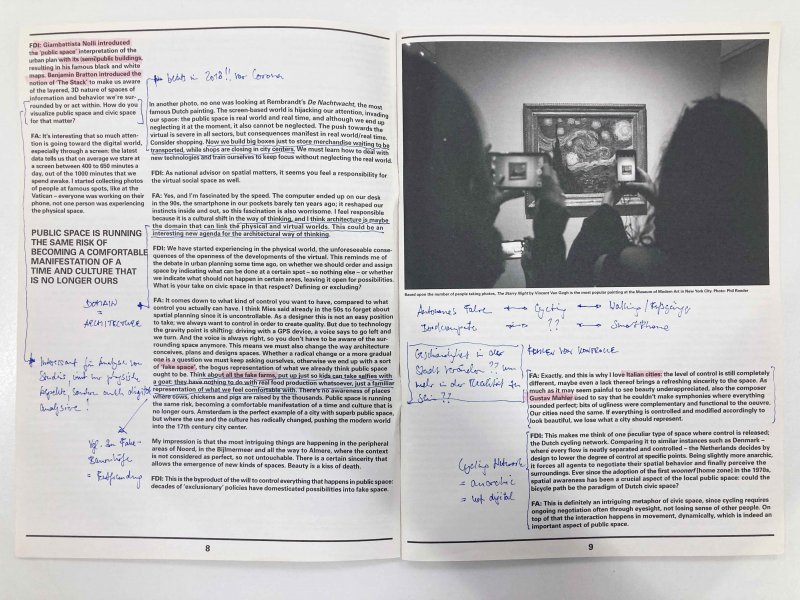 FDI: Giambattista Nolli introduced
the 'public space' interpretation of the
urban plan with its (semi)public buildings,
resulting in his famous black and white
maps. Benjamin Bratton introduced the
notion of 'The Stack' to make us aware
of the layered, 3D nature of spaces of
information and behavior we're sur-
rounded by or act within. How do you
visualize public space and civic space
for that matter?
FA: It's interesting that so much atten-
tion is going toward the digital world,
especially through a screen: the latest
data tells us that on average we stare at
a screen between 400 to 650 minutes a
day, out of the 1000 minutes that we
spend awake. I started collecting photos
of people at famous spots, like at the
Vatican – everyone was working on their
phone, not one person was experiencing
the physical space.
PUBLIC SPACE IS RUNNING
THE SAME RISK OF
BECOMING A COMFORTABLE
MANIFESTATION OF A
TIME AND CULTURE THAT
IS NO LONGER OURS
DOMAIN
=
ARCHITECTURE
Interessant für Analyse von
nicht um physische
Aspekte sondern auch digitale
= 
in 2018!! vor Corona
In another photo, no one was looking at Rembrandt's De Nachtwacht, the most
famous Dutch painting. The screen-based world is hijacking our attention, invading
our space: the public space is real world and real time, and although we end up
neglecting it at the moment, it also cannot be neglected. The push towards the
virtual is severe in all sectors, but consequences manifest in real world/real time.
Consider shopping. Now we build big boxes just to store merchandise waiting to be
transported, while shops are closing in city centers. We must learn how to deal with
new technologies and train ourselves to keep focus without neglecting the real world.
FDI: As national advisor on spatial matters, it seems you feel a responsibility for
the virtual social space as well.
FA: Yes, and I'm fascinated by the speed. The computer ended up on our desk
in the 90s, the smartphone in our pockets barely ten years ago; it reshaped our
instincts inside and out, so this fascination is also worrisome. I feel responsible
because it is a cultural shift in the way of thinking, and I think architecture is maybe
the domain that can link the physical and virtual worlds. This could be an
interesting new agenda for the architectural way of thinking.
FDI: We have started experiencing in the physical world, the unforeseeable conse-
quences of the openness of the developments of the virtual. This reminds me of
the debate in urban planning some time ago, on whether we should order and assign
space by indicating what can be done at a certain spot – so nothing else – or whether
we indicate what should not happen in certain areas, leaving it open for possibilities.
What is your take on civic space in that respect? Defining or excluding?
FA: It comes down to what kind of control you want to have, compared to what
control you actually can have. I think Mies said already in the 50s to forget about
spatial planning since it is uncontrollable. As a designer this is not an easy position
to take; we always want to control in order to create quality. But due to technology
the gravity point is shifting: driving with a GPS device, a voice says to go left and
we turn. And the voice is always right, so you don't have to be aware of the sur-
rounding space anymore. This means we must also change the way architecture
conceives, plans and designs spaces. Whether a radical change or a more gradual
one is a question we must keep asking ourselves, otherwise we end up with a sort
of 'fake space', the bogus representation of what we already think public space
ought to be. Think about all the fake farms, put up just so kids can take selfies with
a goat; they have nothing to do with real food production whatsoever, just a familiar
representation of what we feel comfortable with. There's no awareness of places
where cows, chickens and pigs are raised by the thousands. Public space is running
the same risk, becoming a comfortable manifestation of a time and culture that is
no longer ours. Amsterdam is the perfect example of a city with superb public space,
but where the use and the culture has radically changed, pushing the modern world
into the 17th century city center.
My impression is that the most intriguing things are happening in the peripheral
areas of Noord, in the Bijlmermeer and all the way to Almere, where the context
is not considered as perfect, so not untouchable. There is a certain sincerity that
allows the emergence of new kinds of spaces. Beauty is a kiss of death.
FDI: This is the byproduct of the will to control everything that happens in public space;
decades of 'exclusionary' policies have domesticated possibilities into fake space.
8
Based upon the number of people taking photos, The Starry Night by Vincent Van Gogh is the most popular painting at the Museum of Modern Art in New York City. Photo: Phil Roeder
Cycling
Walking / Fußgänger
??
Smartphone
in der
Stadt ??
mehr in der Realität zu
sein ??
FA: Exactly, and this is why I love Italian cities: the level of control is still completely
different, maybe even a lack thereof brings a refreshing sincerity to the space. As
much as it may seem painful to see beauty underappreciated, also the composer
Gustav Mahler used to say that he couldn't make symphonies where everything
sounded perfect; bits of ugliness were complementary and functional to the oeuvre.
Our cities need the same. If everything is controlled and modified accordingly to
look beautiful, we lose what a city should represent.
FDI: This makes me think of one peculiar type of space where control is released;
the Dutch cycling network. Comparing it to similar instances such as Denmark –
where every flow is neatly separated and controlled – the Netherlands decides by
design to lower the degree of control at specific points. Being slightly more anarchic,
it forces all agents to negotiate their spatial behavior and finally perceive the
surroundings. Ever since the adoption of the first woonerf (home zone) in the 1970s,
spatial awareness has been a crucial aspect of the local public space: could the
bicycle path be the paradigm of Dutch civic space?
Cycling Network
= anarchic
= not digital
FA: This is definitely an intriguing metaphor of civic space, since cycling requires
ongoing negotiation often through eyesight, not losing sense of other people. On
top of that the interaction happens in movement, dynamically, which is indeed an
important aspect of public space.
9